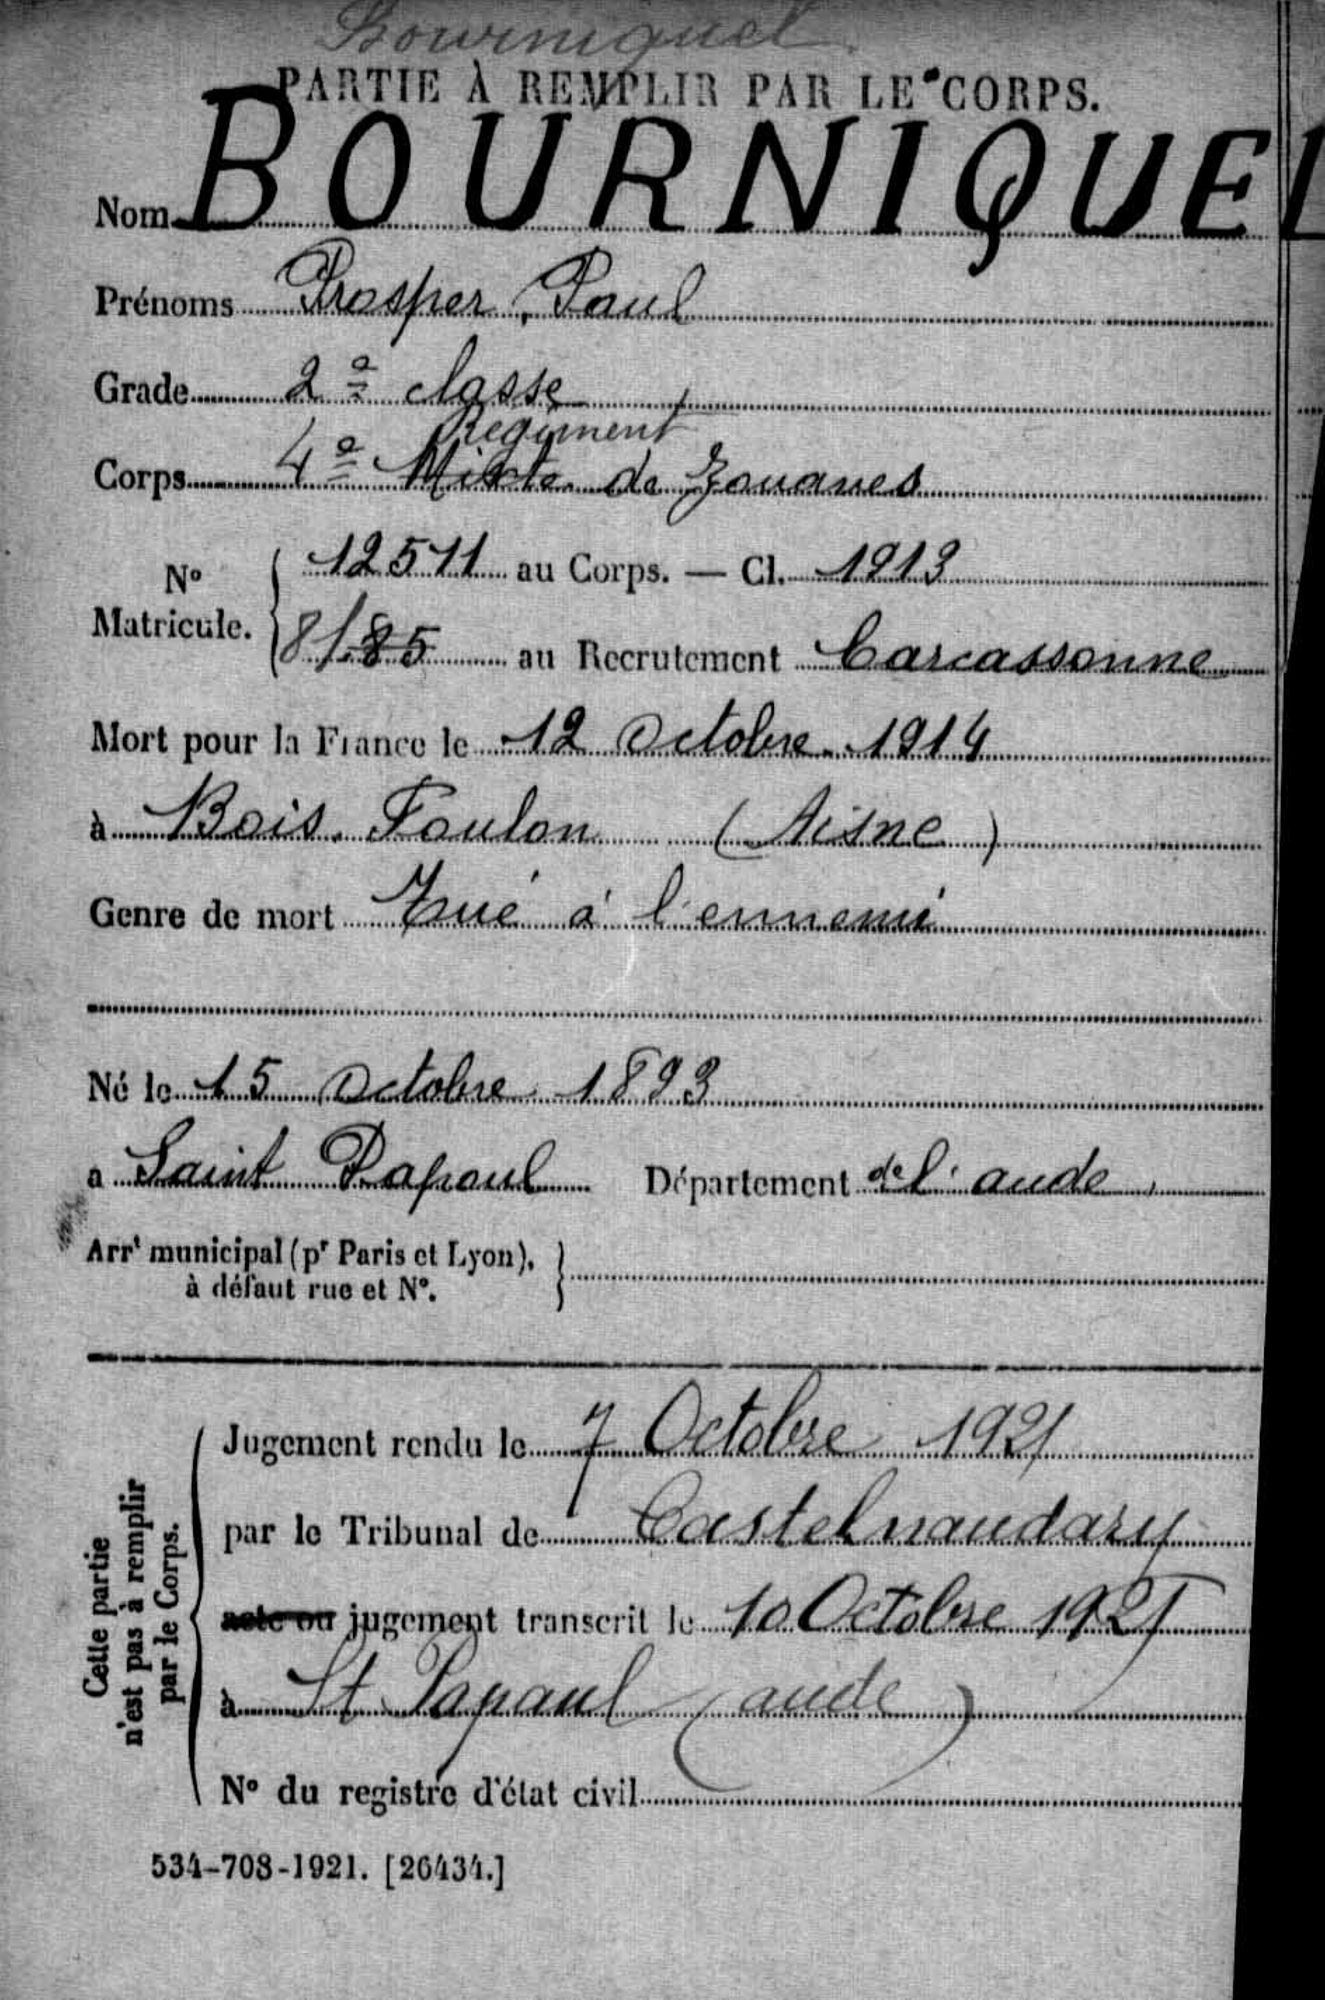 Bourniquel
PARTIE À REMPLIR PAR LE CORPS.
Nom BOURNIQUEL
Prénoms Prosper, Paul
Grade 2e classe
Régiment
Corps 4e Mixte de Zouaves
No Matricule. 12511 au Corps. — Cl. 1913
au Recrutement Carcassonne
Mort pour la France le 12 Octobre 1914
à Bois Foulon (Aisne)
Genre de mort Tué à l'ennemi
Né le 15 Octobre 1893
à Saint Papoul Département de l'aude
Arrt municipal (pr Paris et Lyon),
à défaut rue et No.
Cette partie
n'est pas à remplir
par le Corps.
Jugement rendu le 7 Octobre 1921
par le Tribunal de Castelnaudary
acte ou jugement transcrit le 10 Octobre 1921
à St Papoul (aude)
No du registre d'état civil
534-708-1921. [26434.]